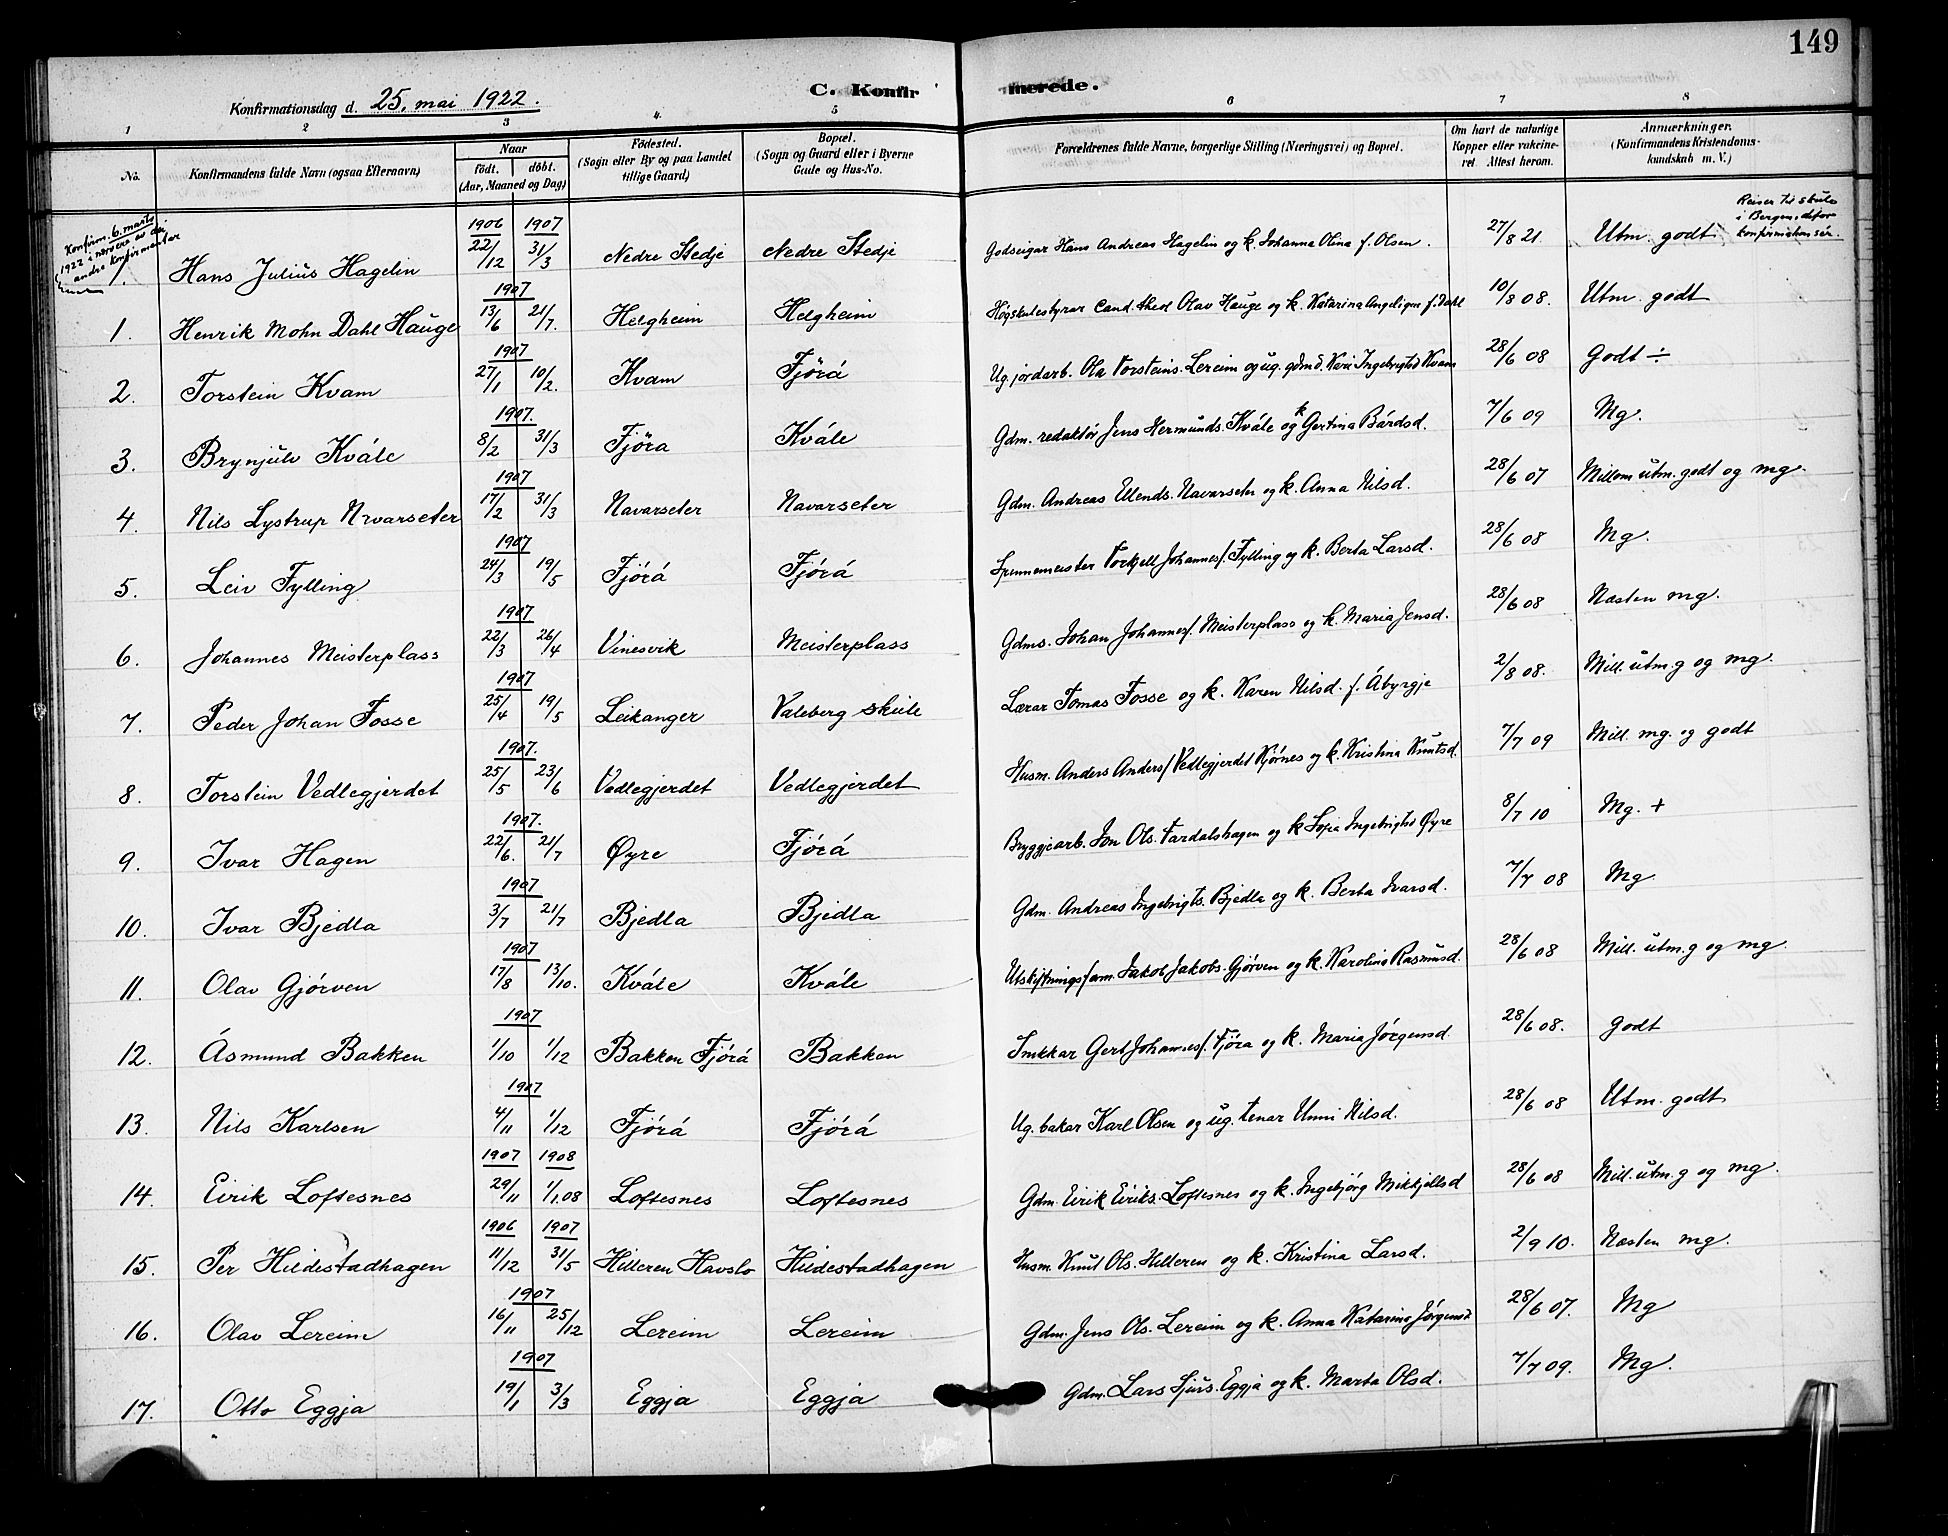 149
Konfirmationsdag d. 25. mai 1922.
C. Konfirmerede.
1 2 3 4. 5 6 7 8
No. Konfirmandens fulde Navn (ogsaa Efternavn) Naar født. døbt. (Aar, Maaned og Dag) Fødested. (Sogn eller By og paa Landet tillige Gaard) Bopæl. (Sogn og Gaard eller i Byerne Gade og Hus-No. Forældrenes fulde Navne, borgerlige Stilling (Næringsvei) og Bopæl. Om havt de naturlige Kopper eller vakcineret. Attest herom. Anmærkninger. (Konfirmandens Kristendomskundskab m. V.)
Konfirm. 6. marts
1922 i nærvere av dei
andre konfirmantar
1906 1907
1. Hans Julius Hagelin 22/12 31/3 Nedre Stedje Nedre Stedje Godseigar Hans Andreas Hagelin og k. Johanna Olina f. Olsen. 27/8 21. Utm. godt. Reiser til skule i Bergen, difor konfirmation sér.
1907
1. Henrik Mohn Dahl Hauge 13/6 21/7. Helgheim Helgheim Høgskulestyrar Cand. theol Olav Hauge og k. Katarina Angelique f. Dahl 10/8 08. Utm. godt
1907
2. Torstein Kvam 27/1 10/2. Kvam Fjörá Ug. jordarb. Ola Torsteins. Lereim og ug. gdmd. Kari Ingebrigtsd Kvam 28/6 08 Godt ÷
1907.
3. Brynjulv Kvåle 8/2 31/3 Fjöra Kvåle Gdm. redaktør Jens Hermunds. Kvåle og k Gertina Bårdsd. 7/6 09 Mg.
1907
4. Nils Lystrup Nvarseter 17/2 31/3 Navarseter Navarseter Gdm. Andreas Ellends. Navarseter og k. Anna Nilsd. 28/6 07 Millom utm. godt og mg.
1907
5. Leiv Fylling 24/3 19/5 Fjórá Fjórá Spennemeister Torkjell Johannes/. Fylling og k. Berta Larsd. 28/6 08 Mg.
1907
6. Johannes Meisterplass 22/3 26/4 Vinesvik Meisterplass Gdms. Johan Johannes/. Meisterplass og k. Maria Jensd. 28/6 08 Næsten mg.
1907
7. Peder Johan Fosse 25/4 19/5 Leikanger Valeberg skule Lærar Tomas Fosse og k. Karen Nilsd. f. Åbyrgje 2/8 08. Mill. utm. g og mg.
1907.
8. Torstein Vedlegjerdet 25/5 23/6 Vedlegjerdet Vedlegjerdet Husm. Anders Anders/ Vedlegjerdet Kjørnes og k. Kristina Knutsd. 7/7 09 Mill. mg. og godt
1907.
9. Ivar Hagen 22/6. 21/7 Øyre Fjórá Bryggjearb. Jon Ols. Tardalshagen og k Sofia Ingebrigtsd Øyre 8/7 10 Mg. +
1907
10. Ivar Bjedla 3/7 21/7 Bjedla Bjedla Gdm. Andreas Ingebrigts. Bjedla og k. Berta Ivarsd. 7/7 08 Mg
1907
11. Olav Gjórven 17/8 13/10. Kvåle Kvåle Utskiftningsfam. Jakob Jakobs. Gjórven og k. Karolina Rasmusd. 28/6 08 Mill. utm. g og mg
1907
12. Åsmund Bakken 1/10 1/12 Bakken Fjórá Bakken Snikkar Gert Johannes/. Fjöra og k. Maria Jórgensd. 28/6 08. Godt
1907
13. Nils Karlsen 4/11 1/12 Fjórá Fjórá Ug. bakar Karl Olsen og ug. tenar Unni Nilsd. 28/6 08 Utm. godt
1907 1908
14. Eirik Loftesnes 29/11 1/1.08 Loftesnes Loftesnes Gdm. Eirik Eiriks. Loftesnes og k. Ingebjörg Mikkjellsd 28/6 08 Mill. utm. g og mg.
1906 1907
15. Per Hildestadhagen 11/12 31/5 Hilleren Havslo Hildestadhagen Husm. Knut Ols. Hilleren og k. Kristina Larsd. 2/9 10. Næsten mg.
1907
16. Olav Lereim 16/11 25/12 Lereim Lereim Gdm. Jens Ols. Lereim og k. Anna Katarina Jórgensd 28/6 07. Mg
1907
17. Otto Eggja 19/1 3/3 Eggja Eggja Gdm. Lars Sjurs. Eggja og k. Marta Olsd. 7/7 09. Mg.